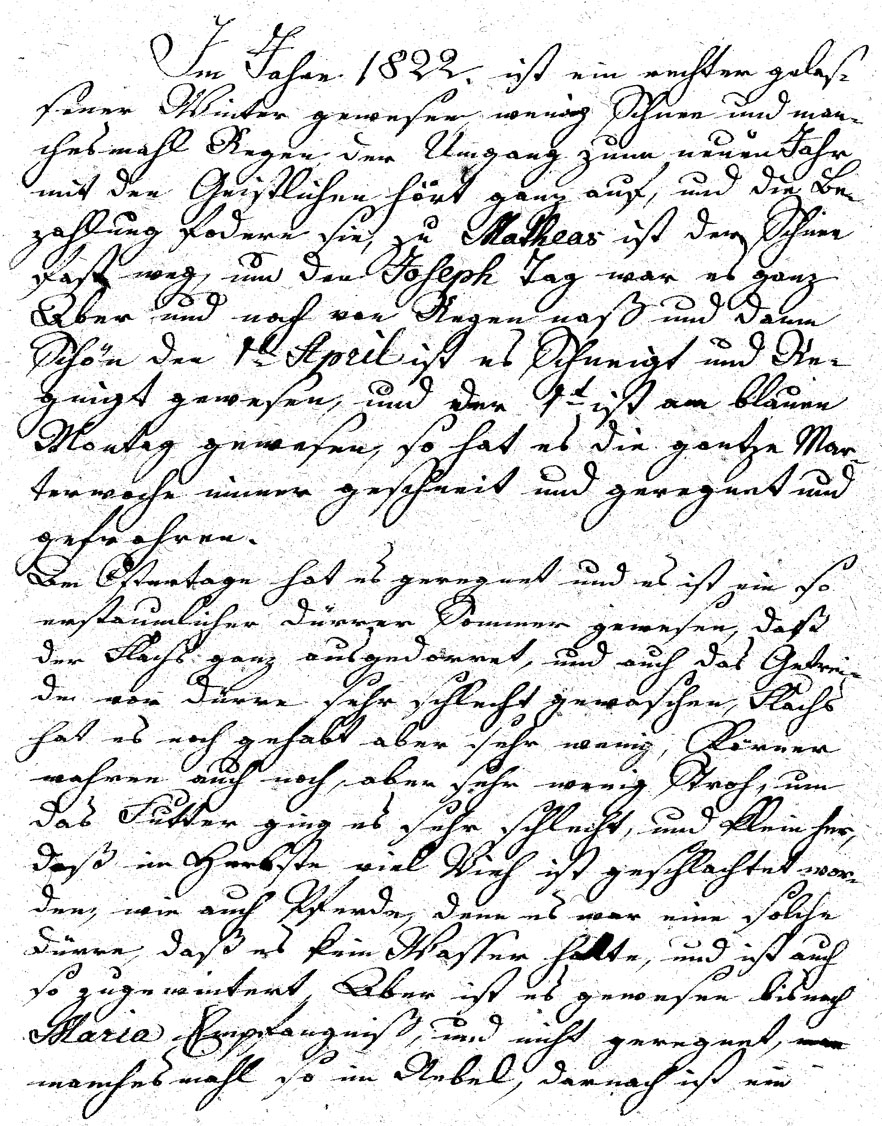 Im Jahre 1822. ist ein rechter gelas-
sener Winter gewesen wenig Schnee und man-
chesmahl Regen der Umgang zum neuen Jahr
mit den Geistlichen hört ganz auf, und die Be-
zahlung fodern sie, zu Matheas ist der Schnee
fast weg, um den Joseph Tag war es ganz
Äber und noch von Regen naß und dann
Schön den 1t April ist es Schneigt und Re-
gnigt gewesen, und der 1t ist am blauen
Montag gewesen, so hat es die gantze Mar-
terwoche immer geschneit und geregnet und
gefrohren.
Die Ostertage hat es geregnet und es ist ein so
erstaunlicher dürrer Sommer gewesen, daß
der Flachs ganz ausgedorret, und auch das Getrei-
de vor dürre sehr schlecht gewaschen, Flachs
hat es noch gehabt aber sehr wenig, Körner
wahren auch noch, aber sehr wenig Stroh, um
das Futter ging es sehr schlecht, und klein her,
daß im Herbste viel Vieh ist geschlachtet wor-
den, wie auch Pferde, denn es war eine solche
dürre, daß es kein Wasser hatte, und ist auch
so zugewintert, Äber ist es gewesen bis nach
Maria Empfängniß, und nicht geregnet,
manchesmahl so im Nebel, darnach ist ein